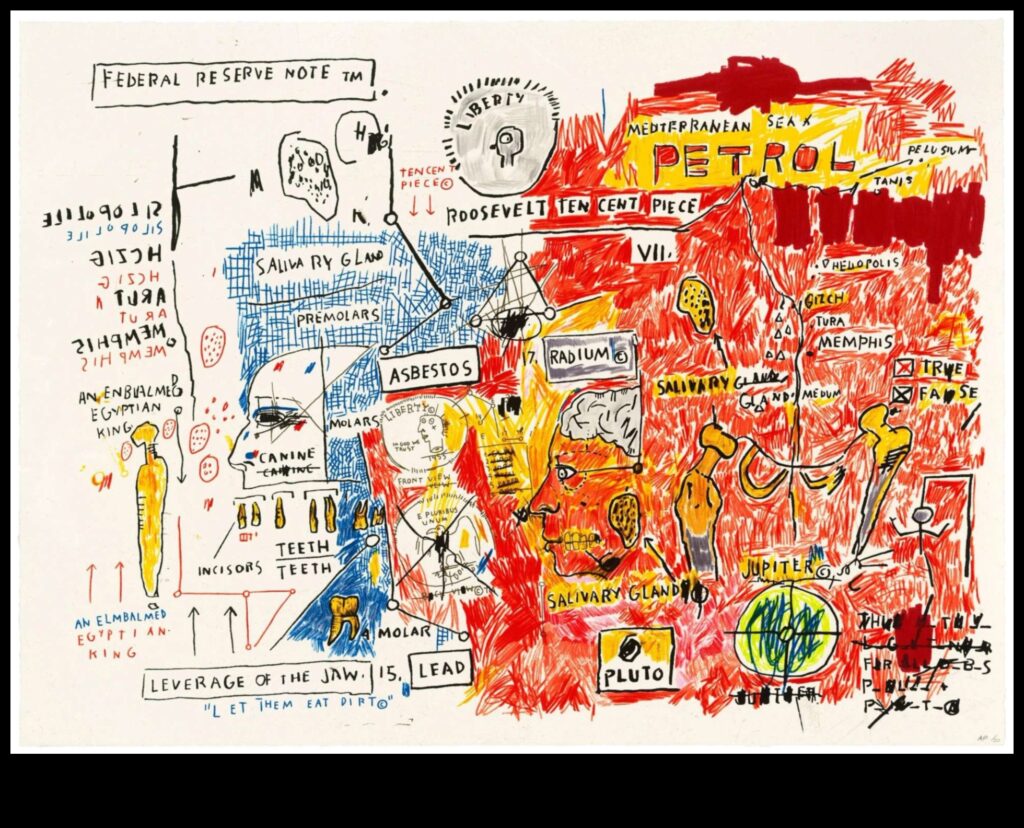 FEDERAL RESERVE NOTE TM
LIBERTY
TENCENT
PIECE©
ROOSEVELT TEN CENT PIECE
MEDTERRANEAN SEA
PETROL
PELUSIUM
TANIS
VII.
M
HCZIG
HCZIG
ARUT
ARUT
MEMPHIS
MEMPHIS
SALIVARY GLAND
PREMOLARS
ASBESTOS
17.
RADIUM©
HELIOPOLIS
GIZCH
TURA
MEMPHIS
SALIVARY GLAND
GLAND
MEDUM
TRUE
FALSE
AN ENBIALMED
EGYPTIAN
KING
MOLARS
LIBERTY©
IN GOD WE
TRUST
1955
FRONT VIEW
CANINE
CANINE
E PLURIBUS
UNUM
TEETH
TEETH
INCISORS
SALIVARY GLAND
JUPITER©
AN ELMBALMED
EGYPTIAN
KING
A MOLAR
LEVERAGE OF THE JAW.
15.
LEAD
"LET THEM EAT DIRT©"
PLUTO
JUPITER